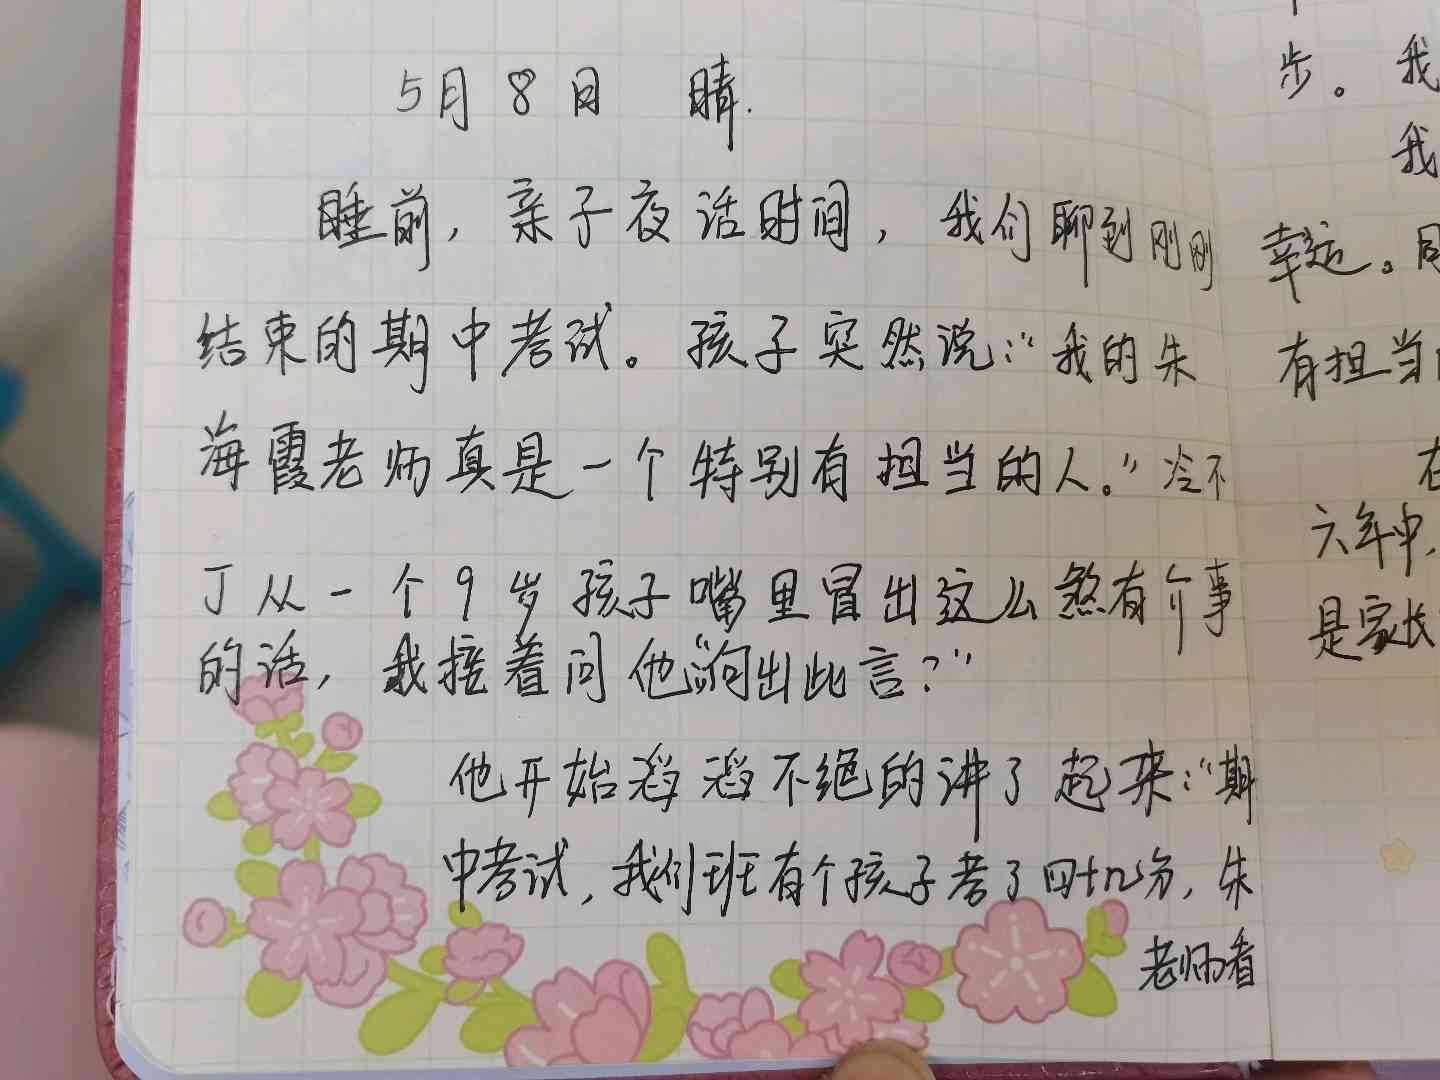 5月8日 晴.
睡前，亲子夜话时间，我们聊到刚刚
结束的期中考试。孩子突然说：“我的朱
海霞老师真是一个特别有担当的人。”冷不
丁从一个9岁孩子嘴里冒出这么煞有介事
的话，我接着问他“何出此言？”
他开始滔滔不绝的讲了起来：“期
中考试，我们班有个孩子考了四十几分，朱
老师看
步。我
我
幸运。同
有担当
在
六年中，
是家长